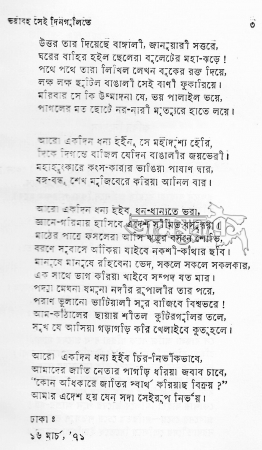 ভয়াবহ সেই দিনগুলিতে ৩
উত্তর তার দিয়েছে বাঙ্গালী, জানুয়ারী সত্তরে,
ঘরের বাহির হইল ছেলেরা বুলেটের মহা-ঝড়ে!
পথে পথে তারা লিখিল লেখন বুকের রক্ত দিয়ে,
লক্ষ লক্ষ ছুটিল বাঙালী সেই বাণী ফুকারিয়ে।
মরিবার সে কি উন্মাদনা যে, ভয় পালাইল ভয়ে,
পাগলের মত ছোটে নর-নারী মৃত্যুরে হাতে লয়ে।
আরো একদিন ধন্য হইনু সে মহাদৃশ্য হেরি,
দিকে দিগন্তে বাজিল যেদিন বাঙালীর জয়ভেরী।
মহাহুঙ্কারে কংস-কারার ভাঙিয়া পাষাণ দ্বার,
বঙ্গ-বন্ধু শেখ মুজিবেরে করিয়া আনিল বার।
আরো একদিন ধন্য হইব, ধন-ধান্যেতে ভরা,
জ্ঞানে-গরিমায় হাসিবে এদেশ
মাঠের পাত্রে ফসলেরা আসি ঋতুর বসনে শোভি,
বরণে সুবাসে আঁকিয়া যাইবে নকশী-কাঁথার ছবি।
মানুষে মানুষে রহিবেনা ভেদ, সকলে সকলকার,
এক সাথে ভাগ করিয়া খাইবে সম্পদ যত মার।
পদ্মা মেঘনা যমুনা নদীর রূপালীর তার পরে,
পরাণ ভুলানো ভাটিয়ালী সুর বাজিবে বিশ্বভরে!
আম-কাঁঠালের ছায়ায় শীতল কুটিরগুলির তলে,
সুখ যে আসিয়া গড়াগড়ি করি খেলাইবে কুতূহলে।
আরো একদিন ধন্য হইব চির-নির্ভীকভাবে,
আমাদের জাতি নেতার পাগড়ি ধরিয়া জবাব চাবে,
“কোন অধিকারে জাতির স্বার্থ করিয়াছ বিক্রয়?”
আমার এদেশ হয় যেন সদা সেইরূপ নির্ভয়।
ঢাকা ঃ
১৬ মার্চ, ’৭১